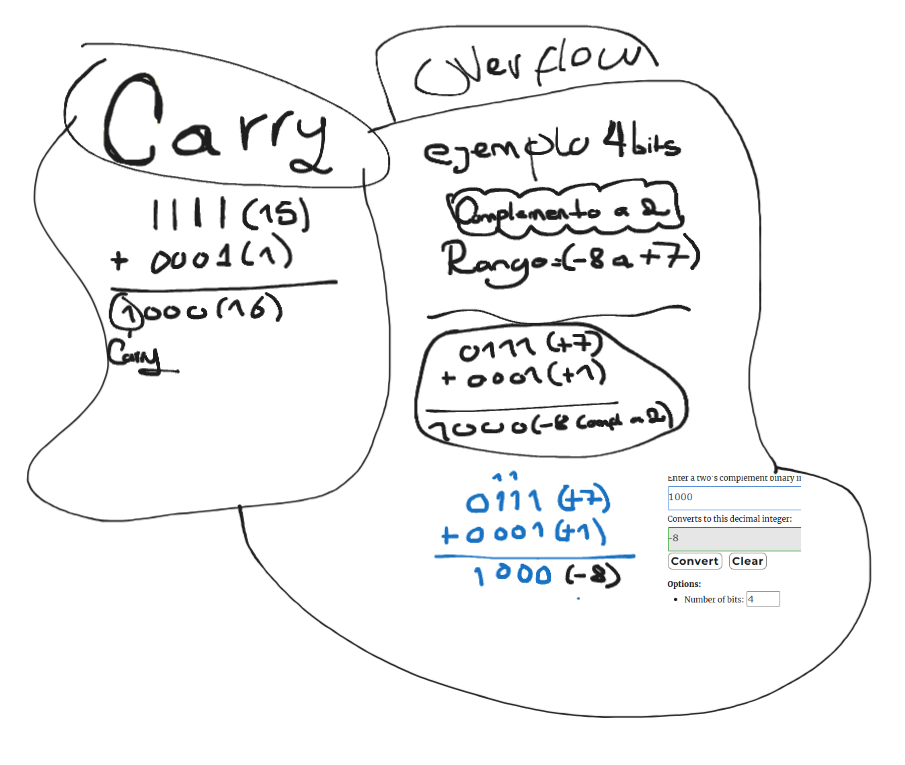 Carry
1111 (15)
+ 0001 (1)
1000 (16)
Carry
Overflow
ejemplo 4 bits
Complemento a 2
Rango=(-8 a +7)
0111 (+7)
+ 0001 (+1)
1000 (-8 Compl a 2)
11
0111 (+7)
+0001 (+1)
1000 (-8)
Enter a two's complement binary
1000
Converts to this decimal integer:
-8
Convert Clear
Options:
• Number of bits: 4